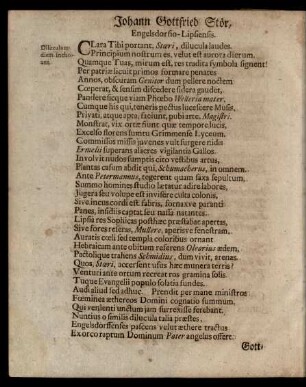 Johann Gottfried Stör,
Engelsdorfio-Lipsiensis.
Diluculum
diem inchoat.
CLara Tibi portant, Stari, dilucula laudes.
Principium nostrum es, velut est aurora dierum.
Quamque Tuas, mirum est, res tradita symbola signent!
Per patriæ sicut primos formare penates
Annos, obscuram Genitor dum pellere noctem
Cœperat, & sensim discedere sidera gaudet,
Pandere sicque viam Phœbo Weileria mater,
Cumque his qui, teneris pectus lucescere Musis,
Privati, atque apta faciunt, pubi arte, Magistri.
Monstrat, vix ortæ sunt quæ tempore lucis,
Excelso florens famæ Grimmense Lyceum.
Commissus missis juvenes vult surgere nidis
Ernestis superans alacres vigilantia Gallos.
Involvit nudos sumptis cito vestibus artus,
Plantas casum abdit qui, Schumacherus, in omnem.
Ante Petermannus, tegerent quam saxa sepultum,
Summo homines studio lætatur adire labores,
Jugera seu volupe est invisere culta colonis,
Sive incus cordi est fabris, fornaxve puranti
Panes, insidiis captas seu nassa natantes.
Lipsia res Sophicas posthæc præstabat apertas,
Sive fores referas, Mullere, aperisve fenestram.
Auratis cœli sed templa coloribus ornant
Hebraicam ante obitum referens Olearius ædem,
Pactolique trahens Schmidius, dum vivit, arenas.
Quos, Stari, accersent usus hæc munera terris!
Venturi ante ortum recreat ros gramina solis
Tuque Evangelii populo solatia fundes.
Audi aliud sed adhuc. Prendit per mane ministros
Fœmineus æthereos Domini cognatio summum,
Qui venienti unctum jam surrexisse ferebant.
Nuntius o similis dilucula talia præstes,
Engelsdorffenses pascens velut æthere tractus
Ex orco raptum Dominum Pater angelus offert.
Gott-